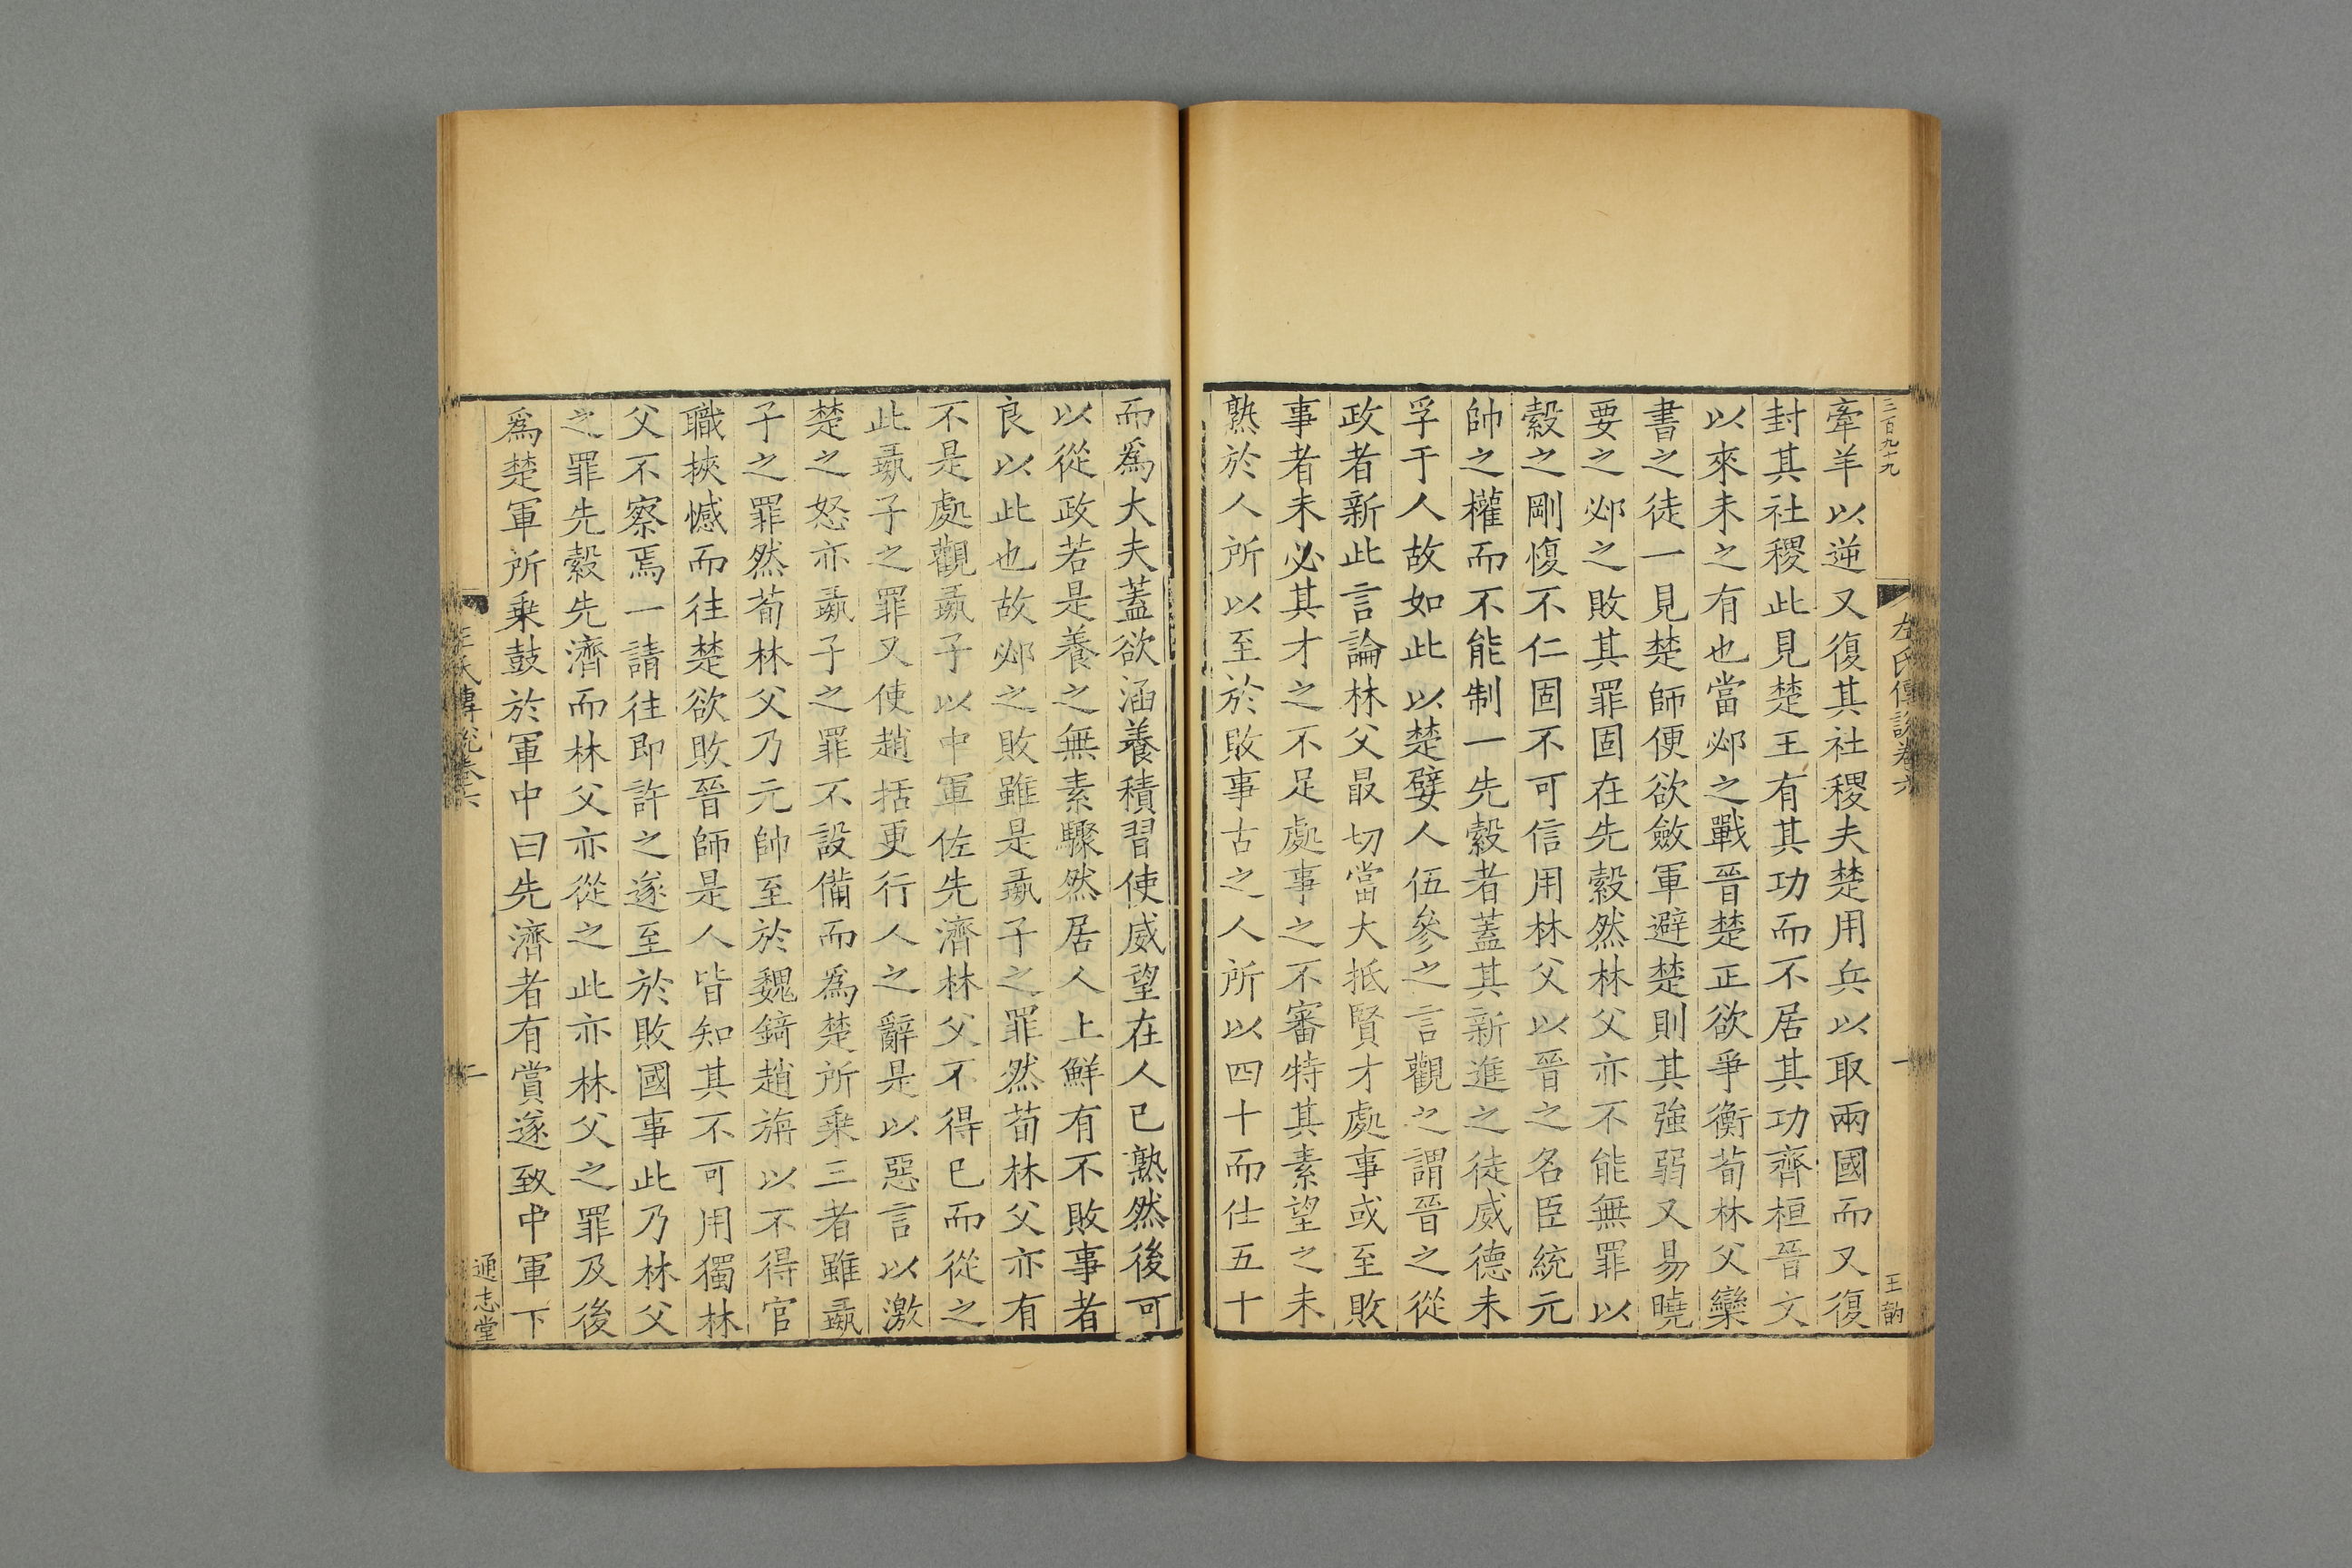 三百九十九
左氏傳說卷六
一
王韵
牽羊以逆又復其社稷夫楚用兵以取兩國而又復
封其社稷此見楚王有其功而不居其功齊桓晉文
以來未之有也當邲之戰晉楚正欲爭衡荀林父欒
書之徒一見楚師便欲斂軍避楚則其強弱又易曉
要之邲之敗其罪固在先縠然林父亦不能無罪以
縠之剛愎不仁固不可信用林父以晉之名臣統元
帥之權而不能制一先縠者蓋其新進之徒威德未
孚于人故如此以楚嬖人伍參之言觀之謂晉之從
政者新此言論林父最切當大抵賢才處事或至敗
事者未必其才之不足處事之不審特其素望之未
熟於人所以至於敗事古之人所以四十而仕五十
而爲大夫蓋欲涵養積習使威望在人已熟然後可
以從政若是養之無素驟然居人上鮮有不敗事者
良以此也故邲之敗雖是彘子之罪然荀林父亦有
不是處觀彘子以中軍佐先濟林父不得已而從之
此彘子之罪又使趙括更行人之辭是以惡言以激
楚之怒亦彘子之罪不設備而爲楚所乗三者雖彘
子之罪然荀林父乃元帥至於魏錡趙旃以不得官
職挾憾而往楚欲敗晉師是人皆知其不可用獨林
父不察焉一請往即許之遂至於敗國事此乃林父
之罪先縠先濟而林父亦從之此亦林父之罪及後
爲楚軍所乗鼓於軍中曰先濟者有賞遂致中軍下
左氏傳說卷六
一
通志堂